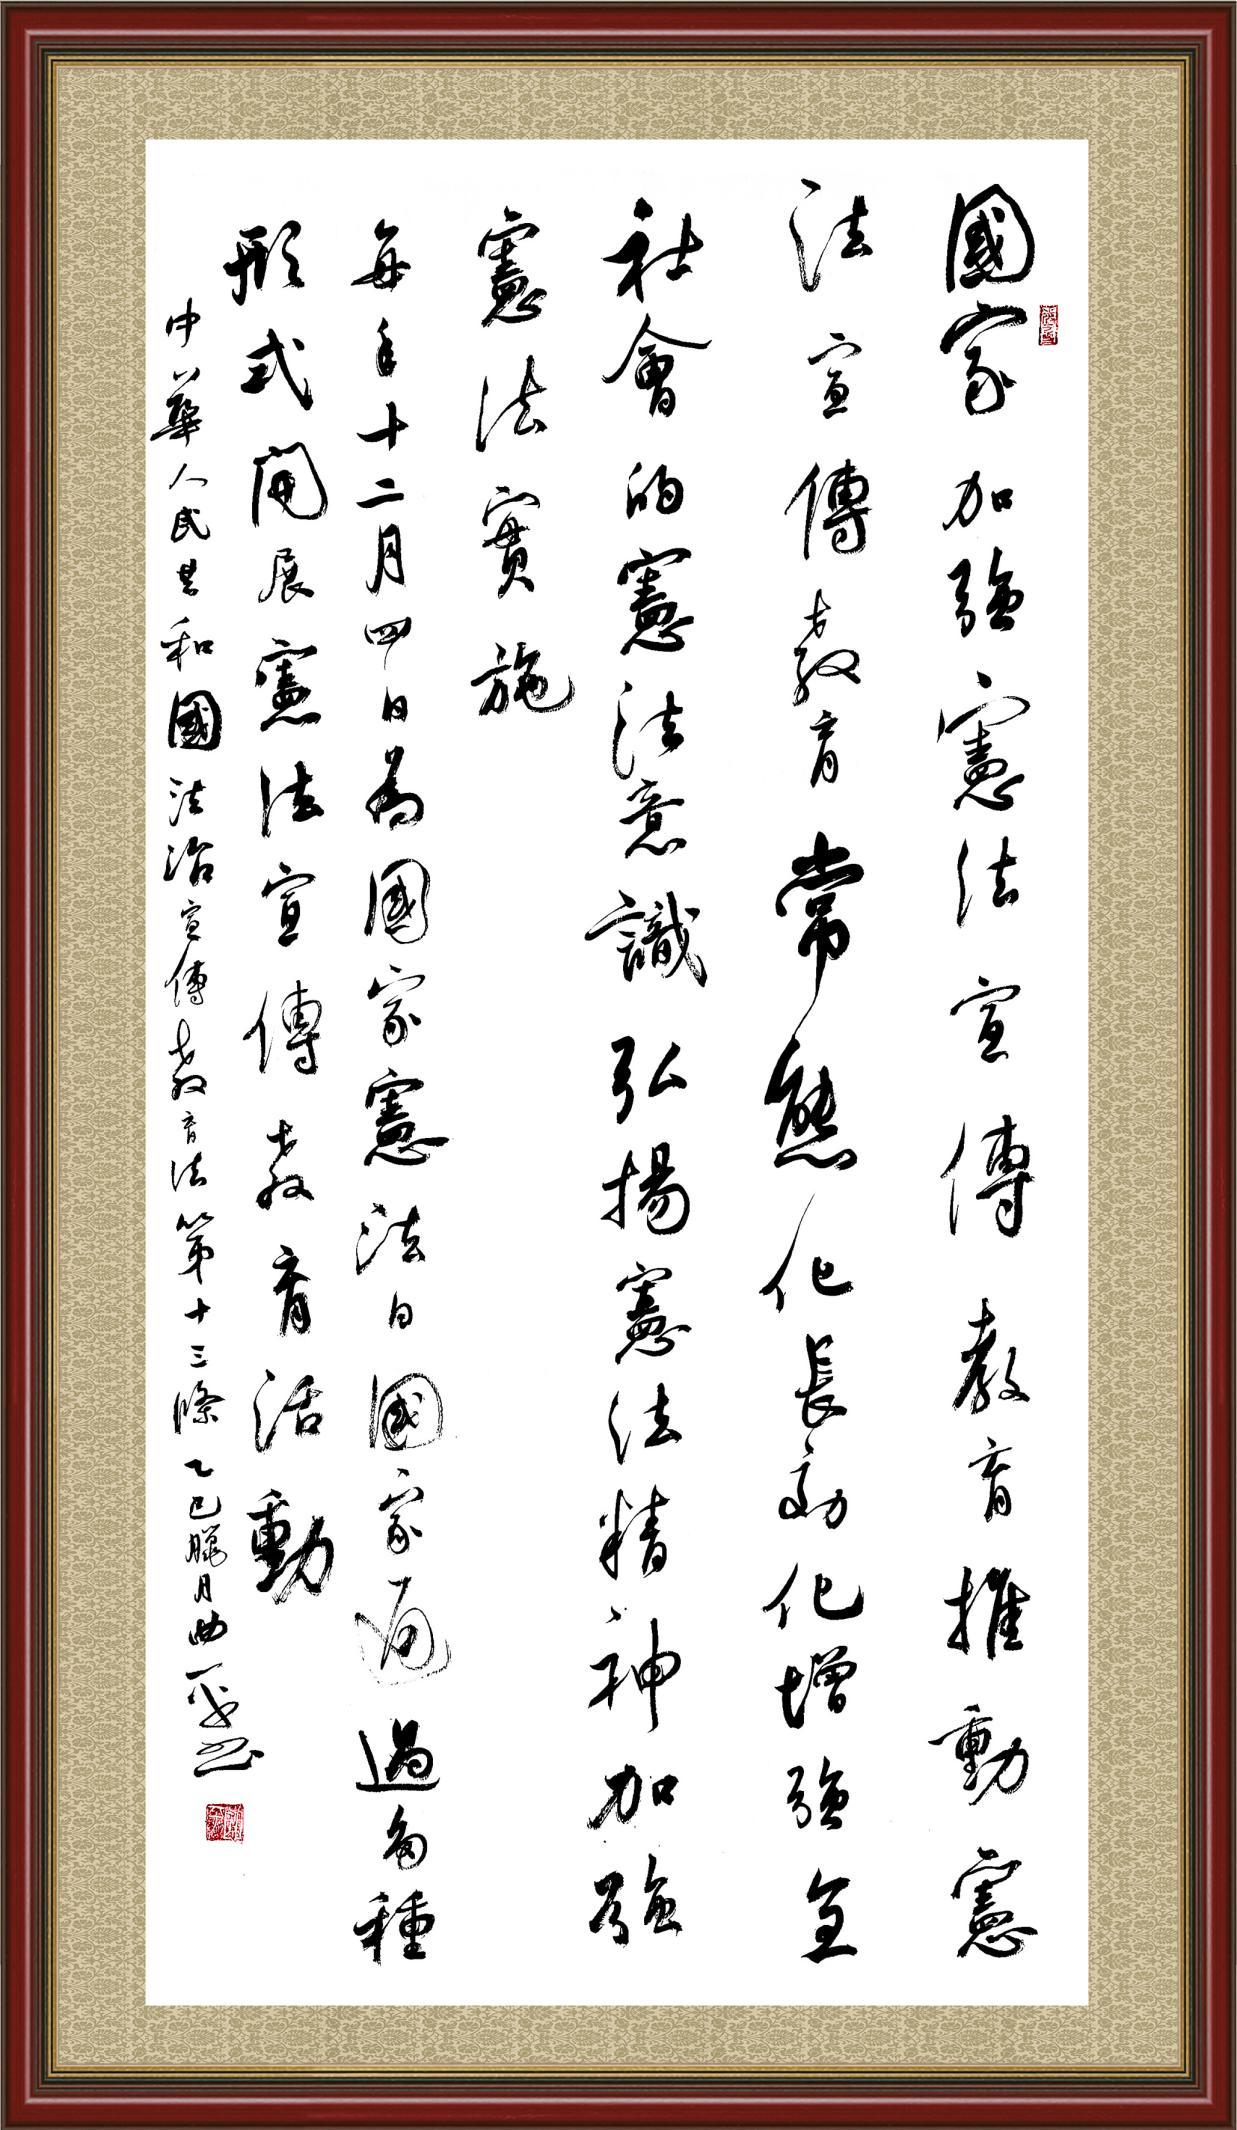 國家加強憲法宣傳教育推動憲
法宣傳教育常態化長効化增強全
社會的憲法意識弘揚憲法精神加強
憲法實施
每年十二月四日為國家憲法日國家通過多種
形式開展憲法宣傳教育活動
中華人民共和國法治宣傳教育法第十三條乙巳臘月曲平書